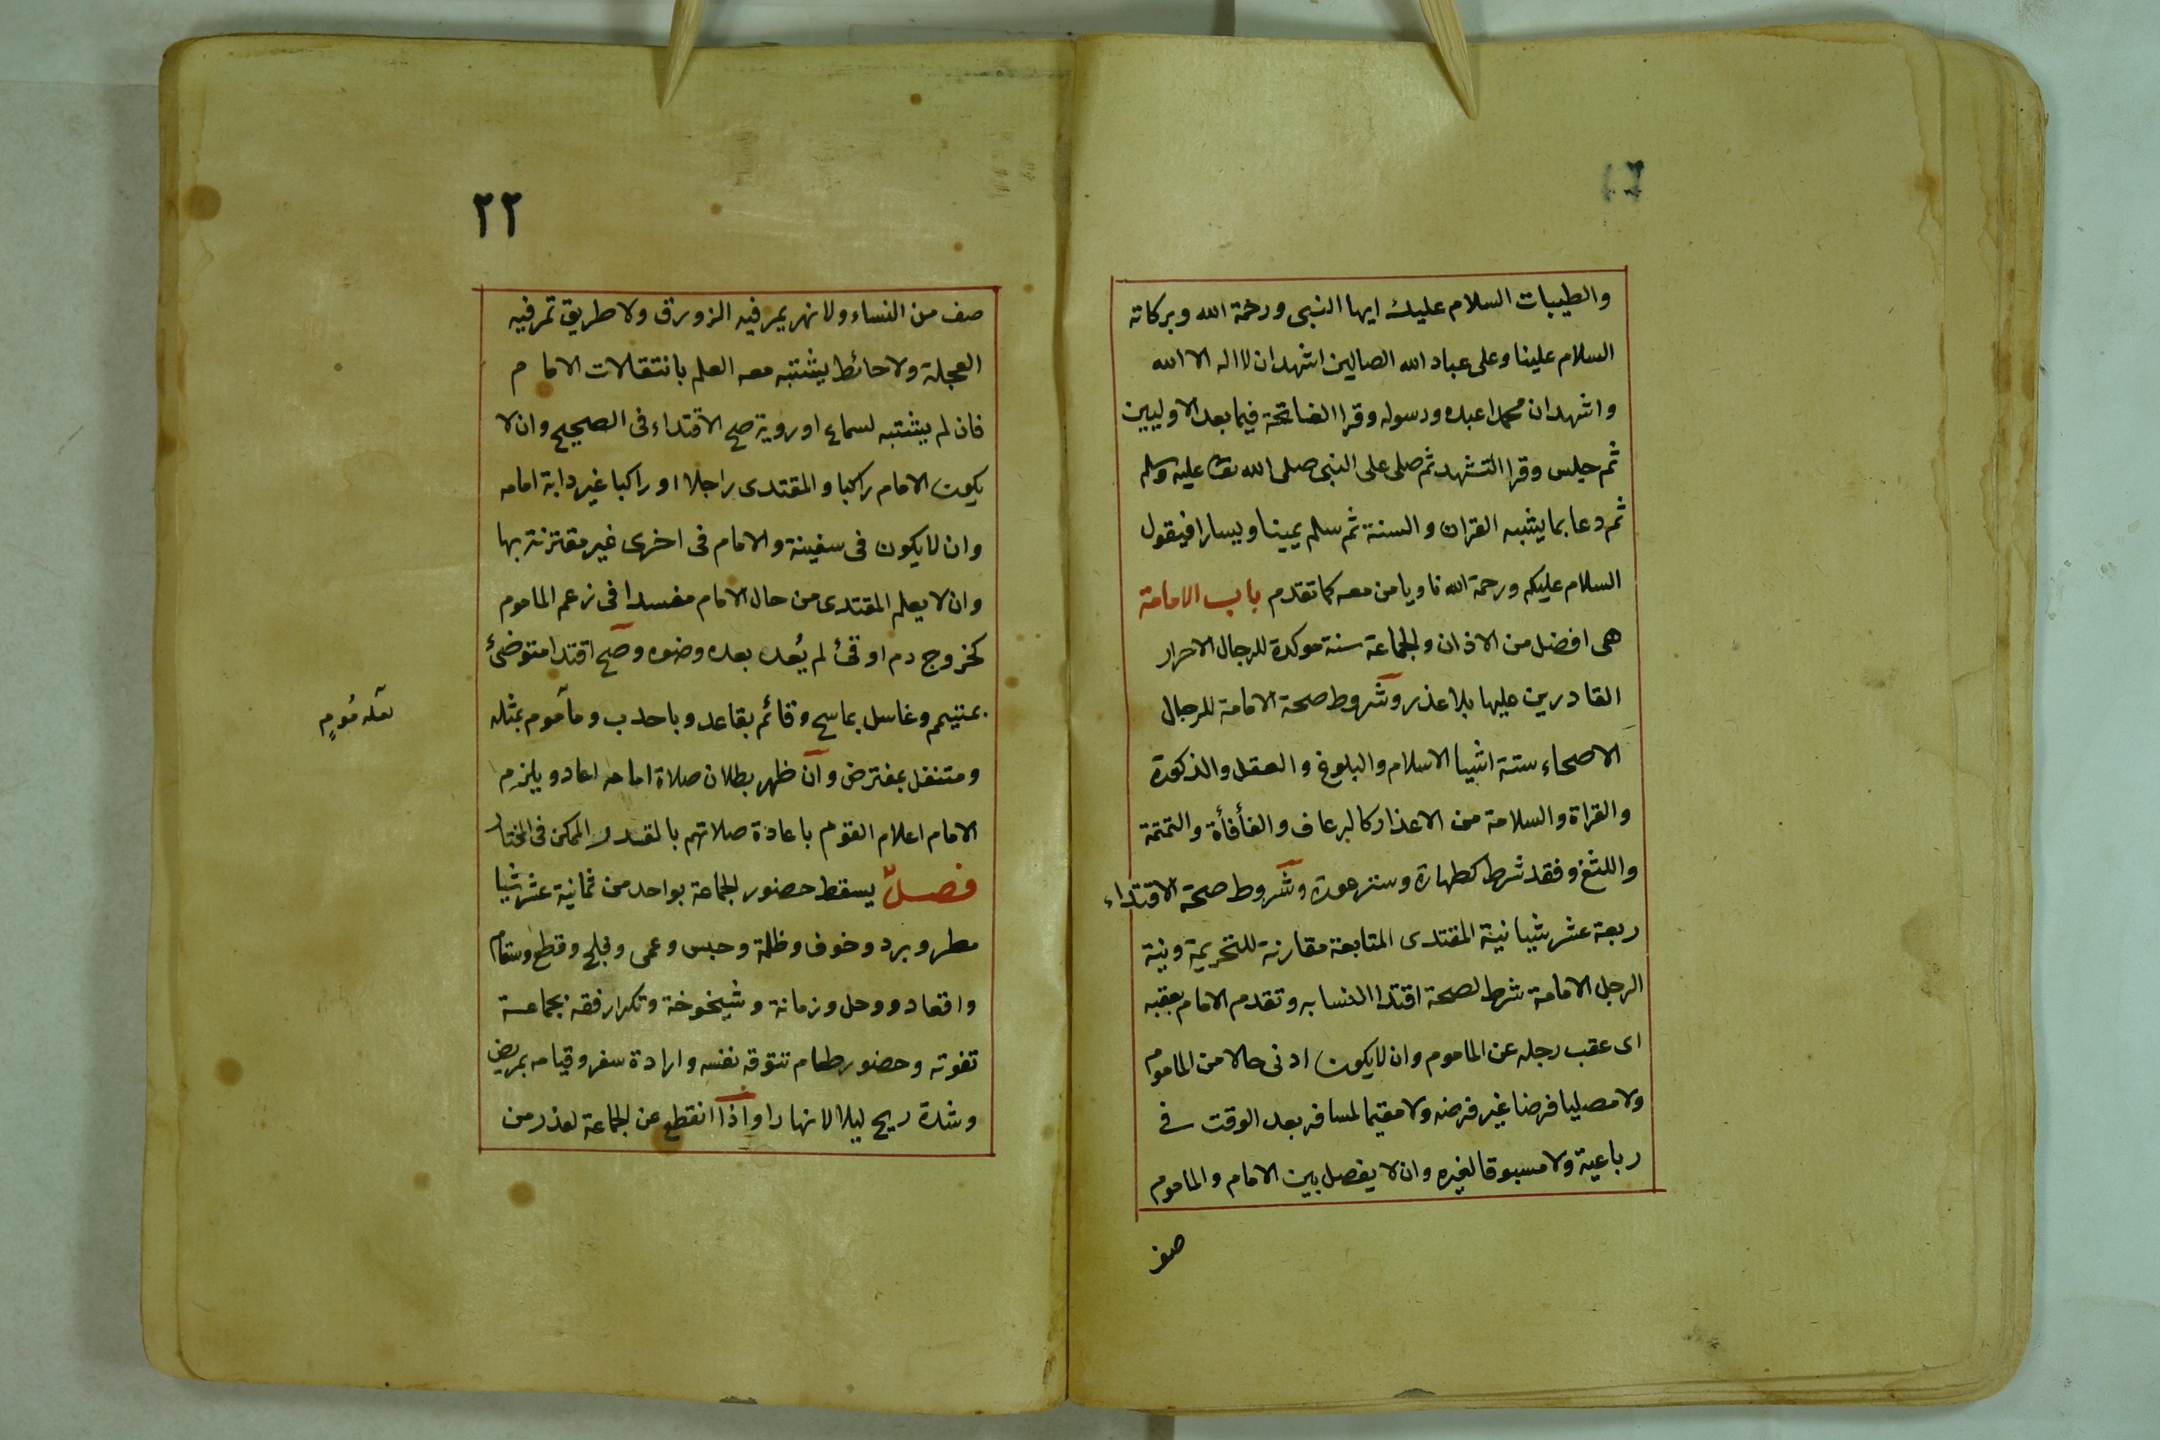 والطيبات السلام عليك ايها النبى ورحمة الله وبركاته
السلام علينا وعلى عباد الله الصالحين اشهد ان لا اله الا الله
واشهد ان محمدا عبده ورسوله وقرا الفاتحة فيما بعد الاوليين
ثم جلس وقرا التشهد ثم صلى على النبى صلى الله تعا عليه وسلم
ثم دعا بما يشبه القران والسنة ثم سلم يمينا ويسارا فيقول
السلام عليكم ورحمة الله ناويا من معه كما تقدم باب الامامة
هى افضل من الاذان والجماعة سنة موكدة للرجال الاحرار
القادرين عليها بلا عذر وشروط صحة الامامة للرجال
الاصحاء ستة اشيا الاسلام والبلوغ والعقل والذكورة
والقراة والسلامة من الاعذار كالرعاف والفأفأة والتمتمة
واللثغ وفقد شرط كطهارة وستر عورة وشروط صحة الاقتداء
ربعة عشر شيا نية المقتدى المتابعة مقارنة للتحريمة ونية
الرجل الامامة شرط لصحة اقتدا النسا به وتقدم الامام بعقبه
اى عقب رجله عن الماموم وان لا يكون ادنى حالا من الماموم
ولا مصليا فرضا غير فرضه ولا مقيما لمسافر بعد الوقت فى
رباعية ولا مسبوقا لغيره وان لا يفصل بين الامام والماموم
صف
٢٢
صف من النساء ولا نهر يمر فيه الزورق ولا طريق تمر فيه
العجلة ولا حائط يشتبه معه العلم بانتقلات الامام
فان لم يشتبه لسماع او روية صح الاقتداء فى الصحيح وان لا
يكون الامام راكبا والمقتدى راجلا او راكبا غير دابة امامه
وان لا يكون فى سفينة والامام فى اخرى غير مقترنة بها
وان لا يعلم المقتدى من حال الامام مفسدا فى زعم الماموم
كخروج دم او قئ لم يُعد بعده وضوه وصح اقتدا متوضئ
بمتيمم وغاسل بماسح وقائم بقاعد وباحدب ومأموم بمثله
ومتنفل بمفترض وان ظهر بطلان صلاة امامه اعاد ويلزم
الامام اعلام القوم باعادة صلاتهم بالقدر الممكن فى المختار
فصل يسقط حضور الجماعة بواحد من ثمانية عشر شيا
مطر وبرد وخوف وظلمة وحبس وعمى وفلج وقطع وسقام
واقعاد ووحل وزمانة وشيخوخة وتكرار فقه بجماعة
تفوته وحضور طعام تتوقه نفسه وارادة سفر وقيامه بمريض
وشدة ريح ليلا لا نهارا واذا انقطع عن الجماعة لعذر من
مُومٍ